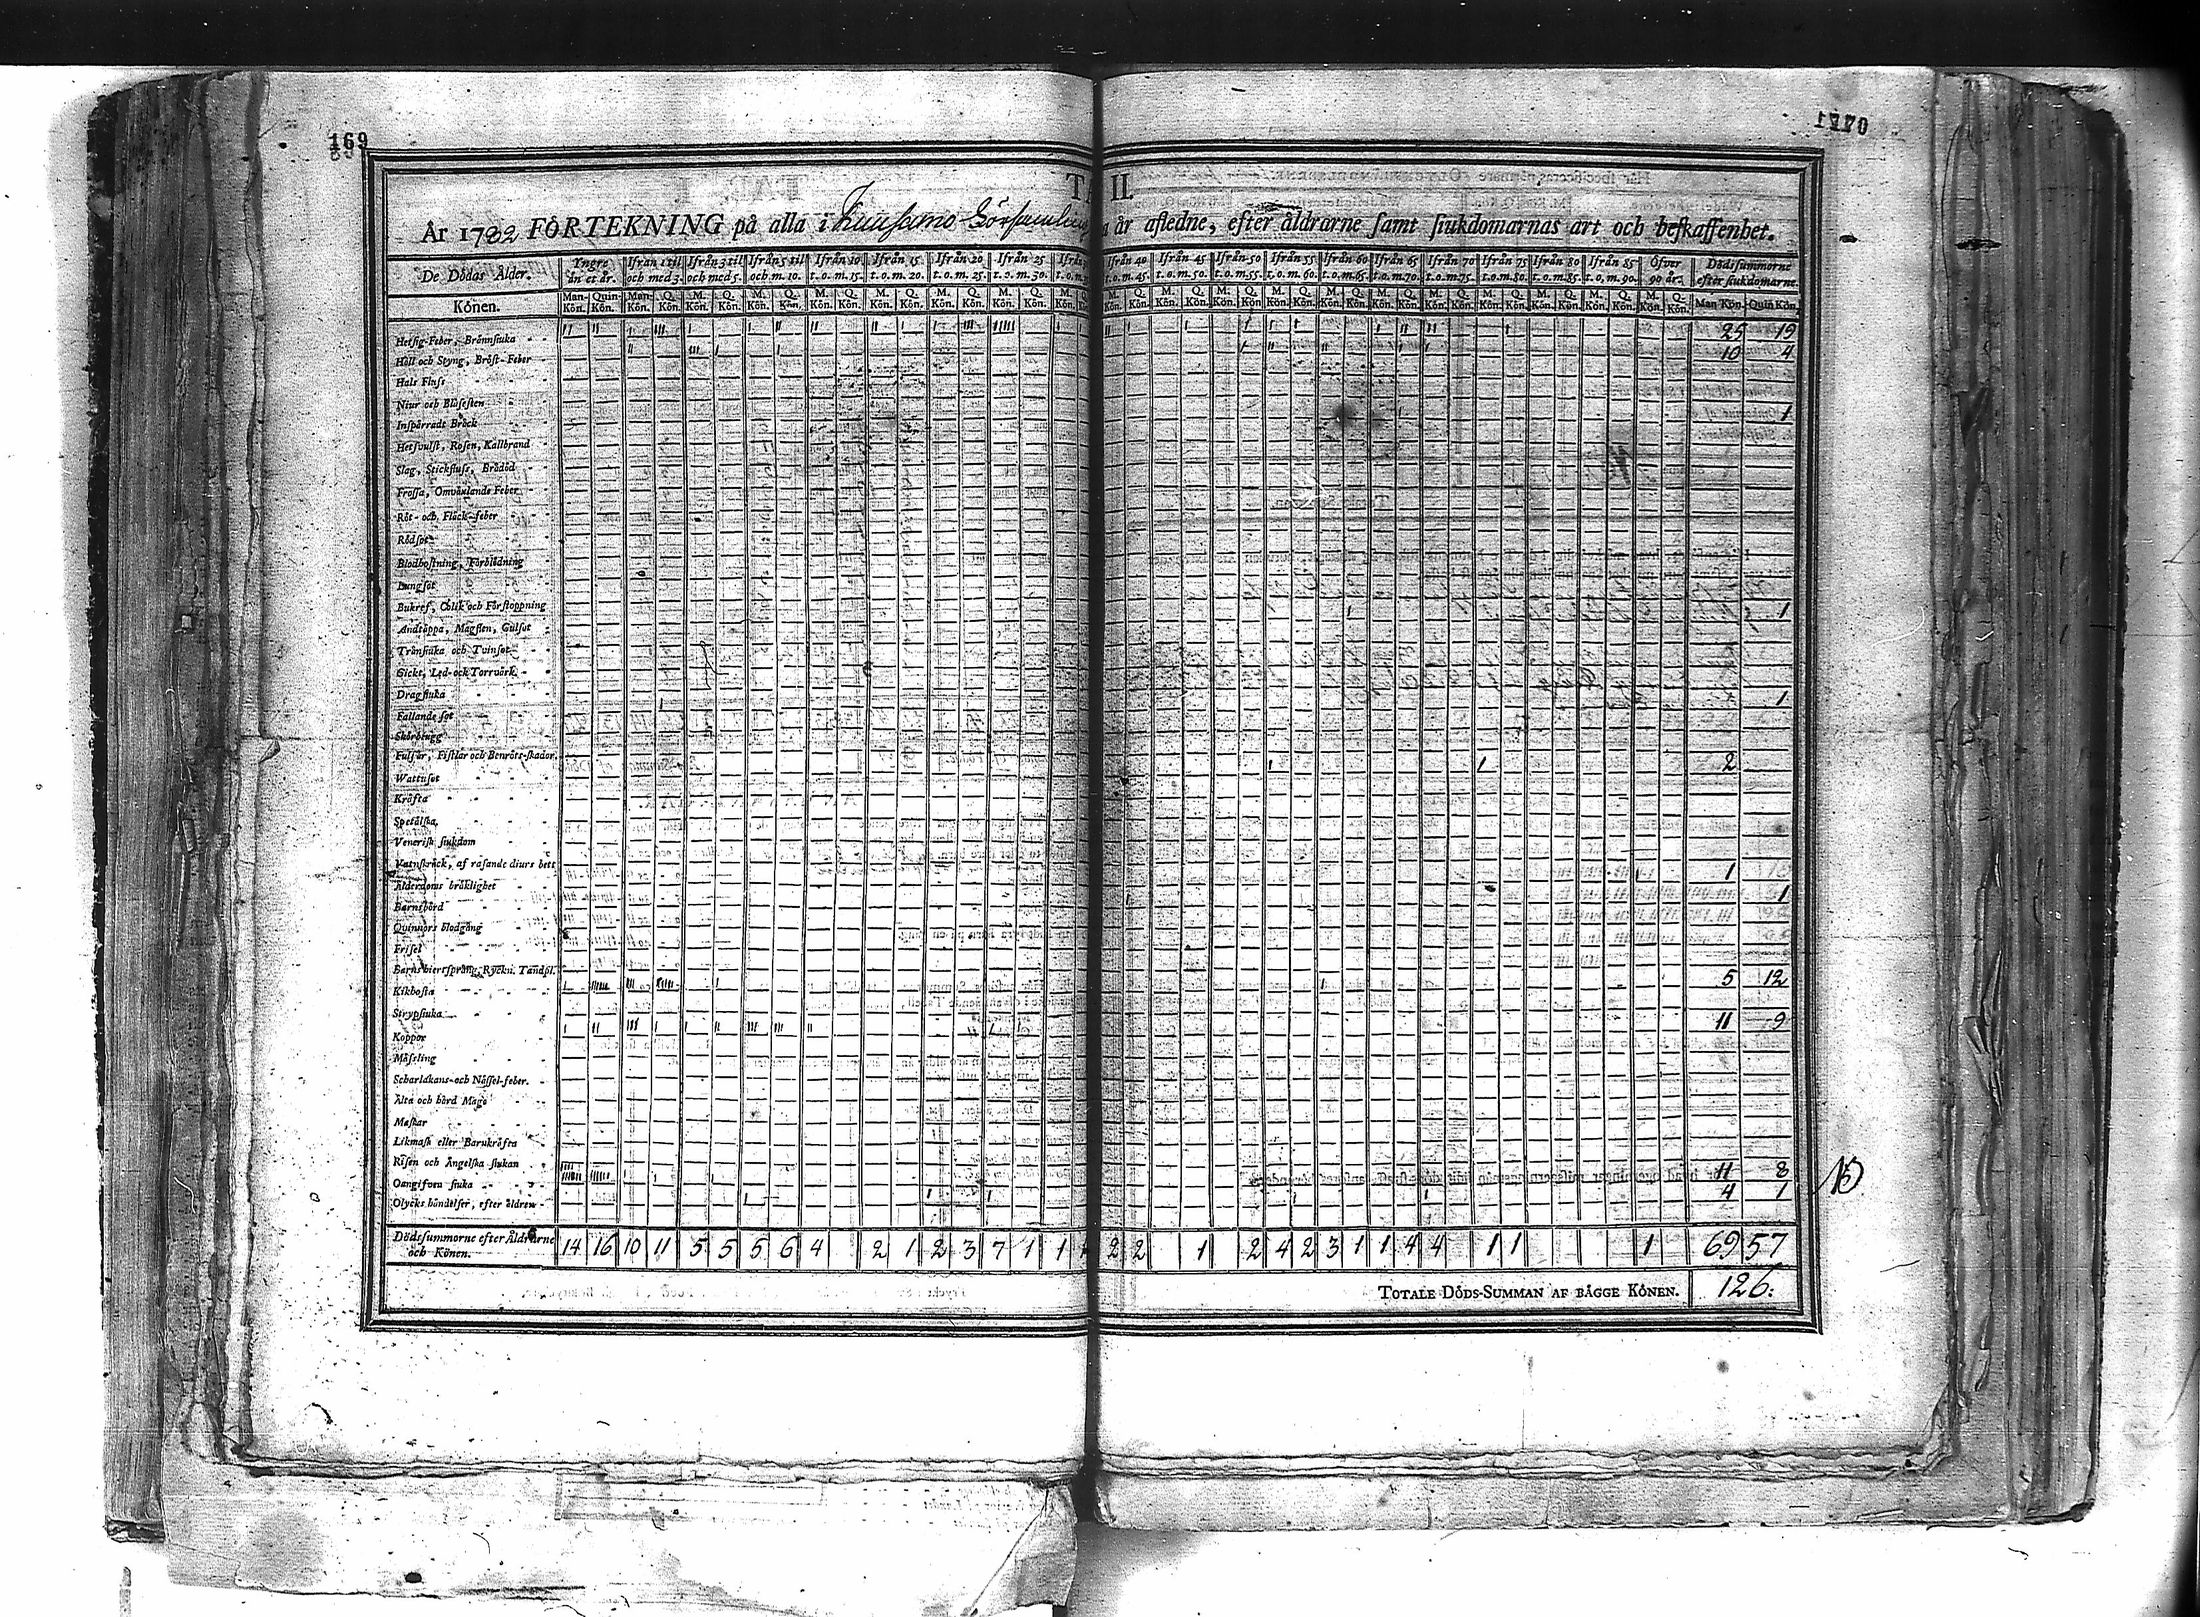 169
TAB II.
År 1782 FÖRTEKNING på alla i Kuusamo Församling år afledne, efter åldrarne samt siukdomarnas art och beskaffenhet.
De Dödas Ålder. Yngre än et år. Ifrån 1 til och med 3. Ifrån 3 til och med 5. Ifrån 5 til och m. 10. Ifrån 10 t.o.m. 15. Ifrån 15 t.o.m. 20. Ifrån 20 t.o.m. 25. Ifrån 25 t.o.m. 30. Ifrån 40 t.o.m. 45. Ifrån 45 t.o.m. 50. Ifrån 50 t.o.m. 55. Ifrån 55 t.o.m. 60. Ifrån 60 t.o.m. 65. Ifrån 65 t.o.m. 70. Ifrån 70 t.o.m. 75. Ifrån 75 t.o.m. 80. Ifrån 80 t.o.m. 85. Ifrån 85 t.o.m. 90. Öfver 90 år. Dödssummorne efter siukdomarne.
Könen. Man-Kön. Quin-Kön. Man-Kön. Q. Kön. M. Kön. Q. Kön. M. Kön. Q. Kön. Man Kön. Quin Kön.
Hetsig-Feber, Brännsiuka 25 19
Håll och Styng, Bröst-Feber 10 4
Hals Fluss
Niur och Blåsesten
Inspärradt Bråck 1
Hetsvulst, Rosen, Kallbrand
Slag, Stickfluss, Brådöd
Frossa, Omväxlande Feber
Röt- och Fläck-feber
Rödsot
Blodhostning, Förblödning
Lungsot
Bukref, Colik och Förstoppning
Andtäppa, Magsten, Gulsot 1
Trånsiuka och Tvinsot
Gickt, Led- och Torrvärk
Dragsiuka
Fallande sot 1
Skörbiugg
Fulsår, Fistlar och Benröts-skador
Wattusot 2
Kräfta
Spetälska
Venerisk siukdom
Vatnskräck, af rasande diurs bett
Ålderdoms bräklighet 1
Barnsbörd 1
Quinnors blodgång
Frisel
Barns hiertsprång, Ryckn. Tandpl.
Kikhosta 5 12
Strypsiuka
Koppor 11 9
Mässling
Scharlakans- och Nässel-feber.
Älta och hård Mage
Maskar
Likmask eller Barnkräfta
Risen och Ängelska siukan
Oangifven siuka 11 8
Olycks händelser, efter åldren 4 1
Dödssummorne efter Åldrarne och Könen. 14 16 10 11 5 5 5 6 4 2 1 2 3 7 1 1 2 2 1 2 4 2 3 1 1 4 4 1 1 1 69 57
TOTALE DÖDS-SUMMAN AF BÅGGE KÖNEN. 126.